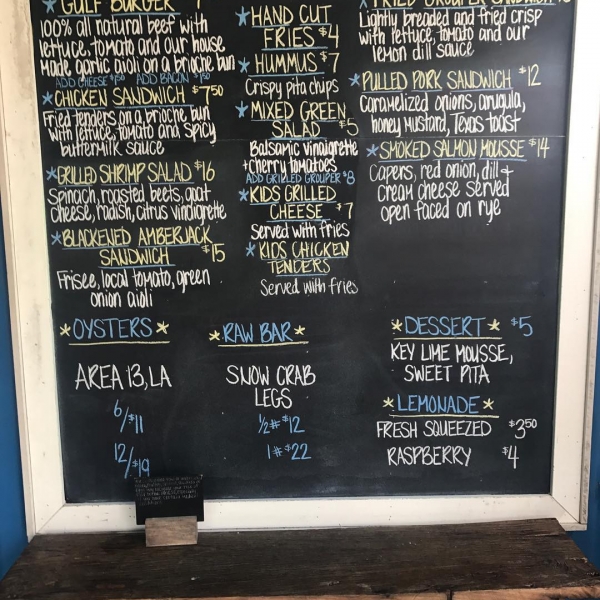 GULF BURGER
100% all natural beef with
lettuce, tomato and our house
made garlic aioli on a brioche bun
ADD CHEESE $1.50 ADD BACON $1.50
CHICKEN SANDWICH $7.50
Fried tenders on a brioche bun
with lettuce, tomato and spicy
buttermilk sauce
GRILLED SHRIMP SALAD $16
Spinach, roasted beets, goat
cheese, radish, citrus vinaigrette
BLACKENED AMBERJACK
SANDWICH $15
Frisee, local tomato, green
onion aioli
HAND CUT
FRIES $4
HUMMUS $7
Crispy pita chips
MIXED GREEN
SALAD $5
Balsamic vinaigrette
+ cherry tomatoes
ADD GRILLED GROUPER $8
KIDS GRILLED
CHEESE $7
Served with fries
KIDS CHICKEN
TENDERS
Served with fries
FRIED GROUPER SANDWICH
Lightly breaded and fried crisp
with lettuce, tomato and our
lemon dill sauce
PULLED PORK SANDWICH $12
Caramelized onions, arugula,
honey mustard, Texas toast
SMOKED SALMON MOUSSE $14
Capers, red onion, dill +
cream cheese served
open faced on rye
OYSTERS
AREA 13, LA
6/$11
12/$19
RAW BAR
SNOW CRAB
LEGS
1/2# $12
1# $22
DESSERT $5
KEY LIME MOUSSE,
SWEET PITA
LEMONADE
FRESH SQUEEZED $3.50
RASPBERRY $4